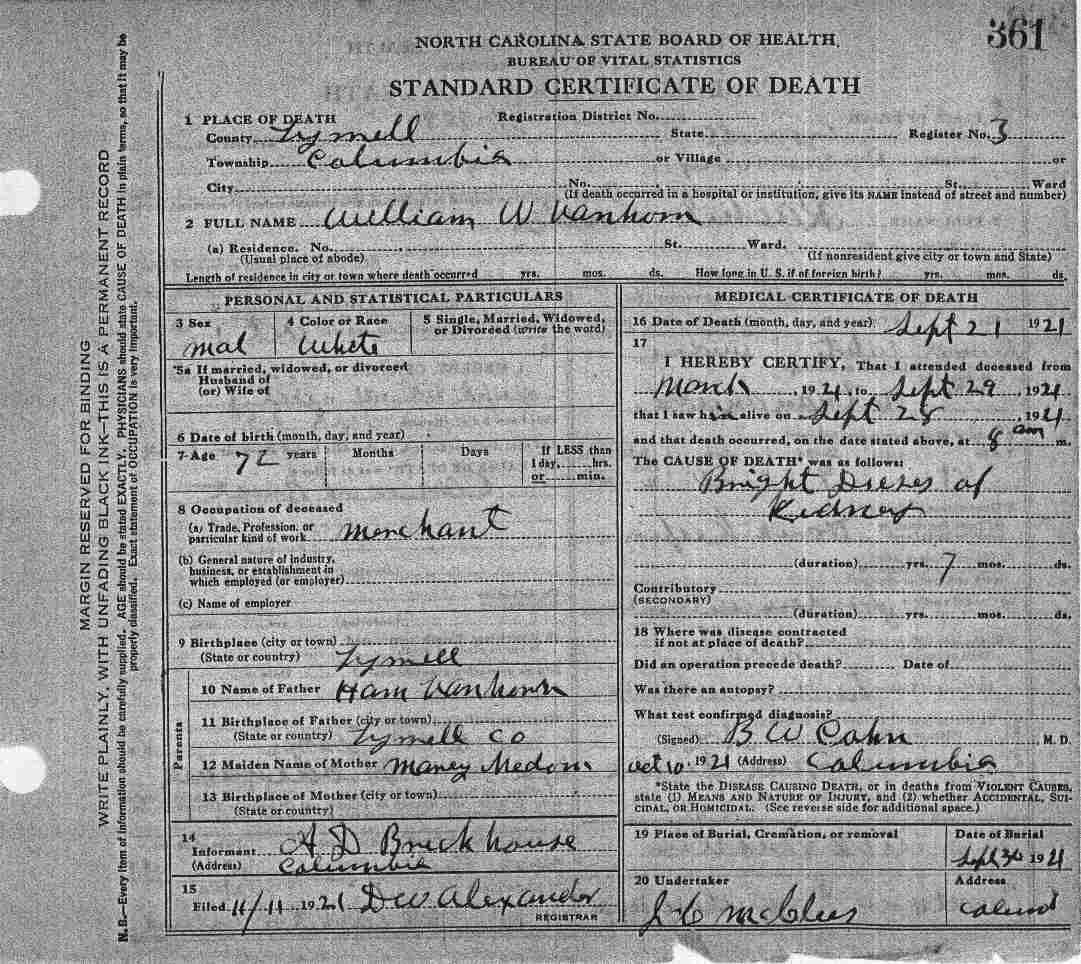 361
NORTH CAROLINA STATE BOARD OF HEALTH,
BUREAU OF VITAL STATISTICS
STANDARD CERTIFICATE OF DEATH
1 PLACE OF DEATH Registration District No.
County Tyrrell State Register No. 3
Township Columbia or Village or
City No. St., Ward
(If death occurred in a hospital or institution, give its NAME instead of street and number)
2 FULL NAME William W Vanhorn
(a) Residence. No. St. Ward.
(Usual place of abode) (If nonresident give city or town and State)
Length of residence in city or town where death occurred yrs. mos. ds. How long in U. S. if of foreign birth? yrs. mos. ds.
PERSONAL AND STATISTICAL PARTICULARS
3 Sex 4 Color or Race 5 Single, Married, Widowed,
or Divorced (write the word)
mal White
5a If married, widowed, or divorced
Husband of
(or) Wife of
6 Date of birth (month, day, and year)
7 Age 72 years Months Days If LESS than
1 day, hrs.
or min.
8 Occupation of deceased
(a) Trade, Profession, or
particular kind of work merchant
(b) General nature of industry,
business, or establishment in
which employed (or employer)
(c) Name of employer
9 Birthplace (city or town)
(State or country) Tyrrell
Parents
10 Name of Father Ham Vanhorn
11 Birthplace of Father (city or town)
(State or country) Tyrrell Co
12 Maiden Name of Mother
13 Birthplace of Mother (city or town)
(State or country)
14
Informant A D Brickhouse
(Address) Columbia
15
Filed 11/11 1921 D W Alexander
REGISTRAR
MEDICAL CERTIFICATE OF DEATH
16 Date of Death (month, day, and year) Sept 21 1921
17
I HEREBY CERTIFY, That I attended deceased from
March, 1921, to Sept 29, 1921
that I saw him alive on Sept 28, 1921
and that death occurred, on the date stated above, at 8 am m.
The CAUSE OF DEATH* was as follows:
Bright Dieses of
Kidneys
(duration) yrs. 7 mos. ds.
Contributory
(SECONDARY)
(duration) yrs. mos. ds.
18 Where was disease contracted
if not at place of death?
Did an operation precede death? Date of
Was there an autopsy?
What test confirmed diagnosis?
(Signed) B W Cohn M. D.
Oct 10, 1921 (Address) Columbia
*State the DISEASE CAUSING DEATH, or in deaths from VIOLENT CAUSES,
state (1) MEANS AND NATURE OF INJURY, and (2) whether ACCIDENTAL, SUI-
CIDAL, OR HOMICIDAL. (See reverse side for additional space.)
19 Place of Burial, Cremation, or removal Date of Burial
Sept 30 1921
20 Undertaker Address
McClees
MARGIN RESERVED FOR BINDING
WRITE PLAINLY, WITH UNFADING BLACK INK—THIS IS A PERMANENT RECORD
N. B.—Every item of information should be carefully supplied. AGE should be stated EXACTLY. PHYSICIANS should state CAUSE OF DEATH in plain terms, so that it may be
properly classified. Exact statement of OCCUPATION is very important.